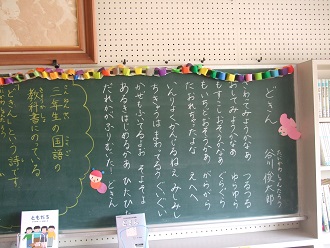 どきん
谷川 俊太郎
たにかわしゅんたろう
さわってみようかなあ つるつる
おしてみようかなあ ゆらゆら
もすこしおそうかなあ ぐらぐら
もいちどおそうかあ がらがら
たおれちゃったよなあ えへへ
いんりょくかんじるねえ みしみし
ちきゅうは まわってるう ぐいぐい
かぜもふいてるよお そよそよ
あるきはじめるかあ ひたひた
だれかがふりむいた どきん
三年生の国語の
こくご
教科書にのっている、
「どきん」という詩です。
ともだち